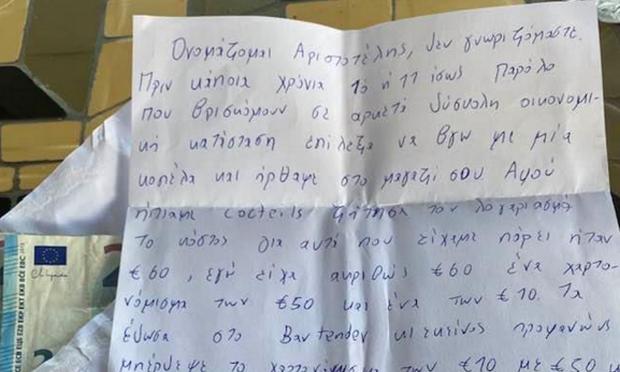 Ονομάζομαι Αριστοτέλης, δεν γνωριζόμαστε.
Πριν κάποια χρόνια 10 ή 11 ίσως Παρόλο
που βρισκόμουν σε αρκετά δύσκολη οικονομι-
κή κατάσταση επέλεξα να βγω με μία
κοπέλα και ήρθαμε στο μαγαζί σου Αφού
ήπιαμε cocteils ζήτησα τον λογαριασμό
Το κόστος για αυτά που είχαμε πάρει ήταν
€60, εγώ είχα ακριβώς €60 ένα χαρτο-
νόμισμα των €50 και ένα των €10. Τα
έδωσα στο Bartender κι εκείνος προφανώς
μπέρδεψε το χαρτονόμισμα των €10 με €50 κ
BCE ECB EZB EKP EKT EKB BĊE EBC